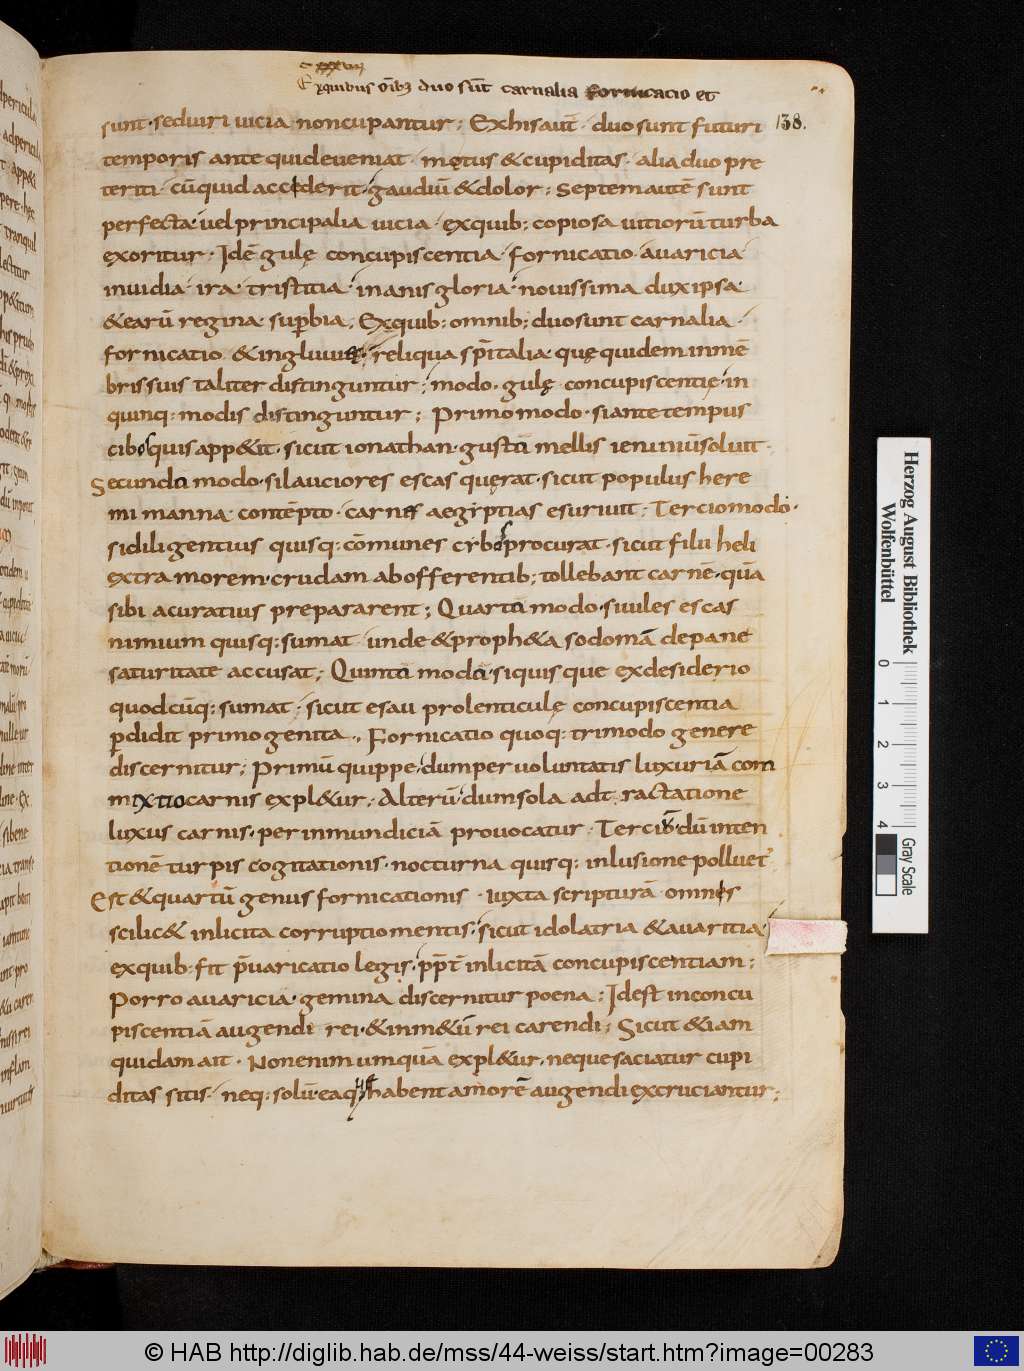 Exquibus oib; duo sūt carnalia fornicacio et
138.
sunt · seduiri uicia noncupantur ; Exhisaut̄ · duo sunt futuri
temporis ante quideueniat · mętus & cupiditas · alia duo pre
teriti · cū quid acciderit · gaudiū & dolor ; Septem autē sunt
perfecta · uel principalia uicia · exquib; copiosa uitiorū turba
exoritur · Idē gulę concupiscentia · fornicatio · auaricia
inuidia · ira · tristitia · inanis gloria · nouissima dux ipsa
& earū regina sup̄bia ; Exquib; omnib; duo sunt carnalia ·
fornicatio & ingluuies · reliqua sp̄italia quę quidem inmē
bris suis taliter distinguntur ; modo · gulę concupiscentię · in
quinq; modis distinguntur ; Primo modo · si ante tempus
cibos quis app&it · sicut ionathan · gustū mellis ieiuniū soluit ·
Secundo modo · si lauciores escas quęrat · sicut populus here
mi manna contēpto · carnes aegiptias esuriuit ; Tercio modo ·
si diligentius quisq; cōmunes cybos procurat · sicut filii heli
extra morem · crudam ab offerentib; tollebant carnē · quā
sibi acuratius prepararent ; Quarto modo · si uiles escas
nimium quisq; sumat · unde & proph&a sodomā de pane
saturitate accusat ; Quinto modo · si quisque ex desiderio
quodcūq; sumat ; sicut esau pro lenticulę concupiscentia
p̄didit primogenita ., Fornicatio quoq; trimodo genere
discernitur ; Primū quippe · dum per uoluntatis luxuriā com
mixtio carnis expl&ur ; Alterū · dum sola adtractatione
luxus carnis · per inmundiciā prouocatur · Terciū · dū inten
tionē turpis cogitationis · nocturna quisq; inlusione polluet
Est & quartū genus fornicationis · iuxta scripturā omnes
scilic& inlicita corruptio mentis · sicut idolatria & auaritia
exquib; fit p̄uaricatio legis · pp̄t̄ inlicitā concupiscentiam ;
Porro auaricia · gemina discernitur poena ; Idest in concu
piscentiā augendi rei · & in m&ū rei carendi ; Sicut & iam
quidam ait · Non enim umquā expl&ur · neque saciatur cupi
ditas sitis · neq; solū ea q; habent amorē augendi excruciantur ;
Herzog August Bibliothek
Wolfenbüttel
0 1 2 3 4
Gray Scale
© HAB http://diglib.hab.de/mss/44-weiss/start.htm?image=00283